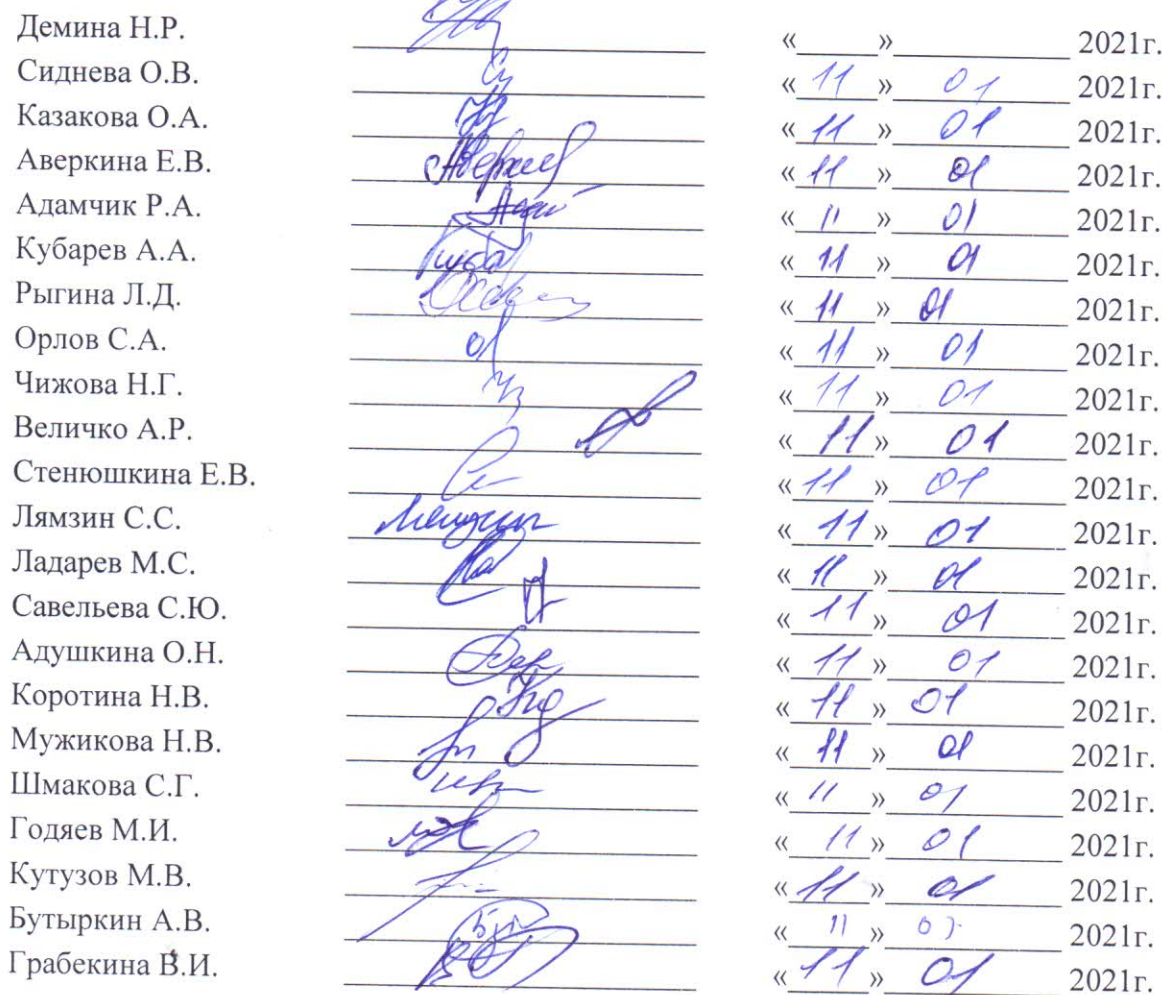 Демина Н.Р. «____»____________ 2021г.
Сиднева О.В. «11» 01 2021г.
Казакова О.А. «11» 01 2021г.
Аверкина Е.В. «11» 01 2021г.
Адамчик Р.А. «11» 01 2021г.
Кубарев А.А. «11» 01 2021г.
Рыгина Л.Д. «11» 01 2021г.
Орлов С.А. «11» 01 2021г.
Чижова Н.Г. «11» 01 2021г.
Величко А.Р. «11» 01 2021г.
Стенюшкина Е.В. «11» 01 2021г.
Лямзин С.С. «11» 01 2021г.
Ладарев М.С. «11» 01 2021г.
Савельева С.Ю. «11» 01 2021г.
Адушкина О.Н. «11» 01 2021г.
Коротина Н.В. «11» 01 2021г.
Мужикова Н.В. «11» 01 2021г.
Шмакова С.Г. «11» 01 2021г.
Годяев М.И. «11» 01 2021г.
Кутузов М.В. «11» 01 2021г.
Бутыркин А.В. «11» 01 2021г.
Грабекина В.И. «11» 01 2021г.